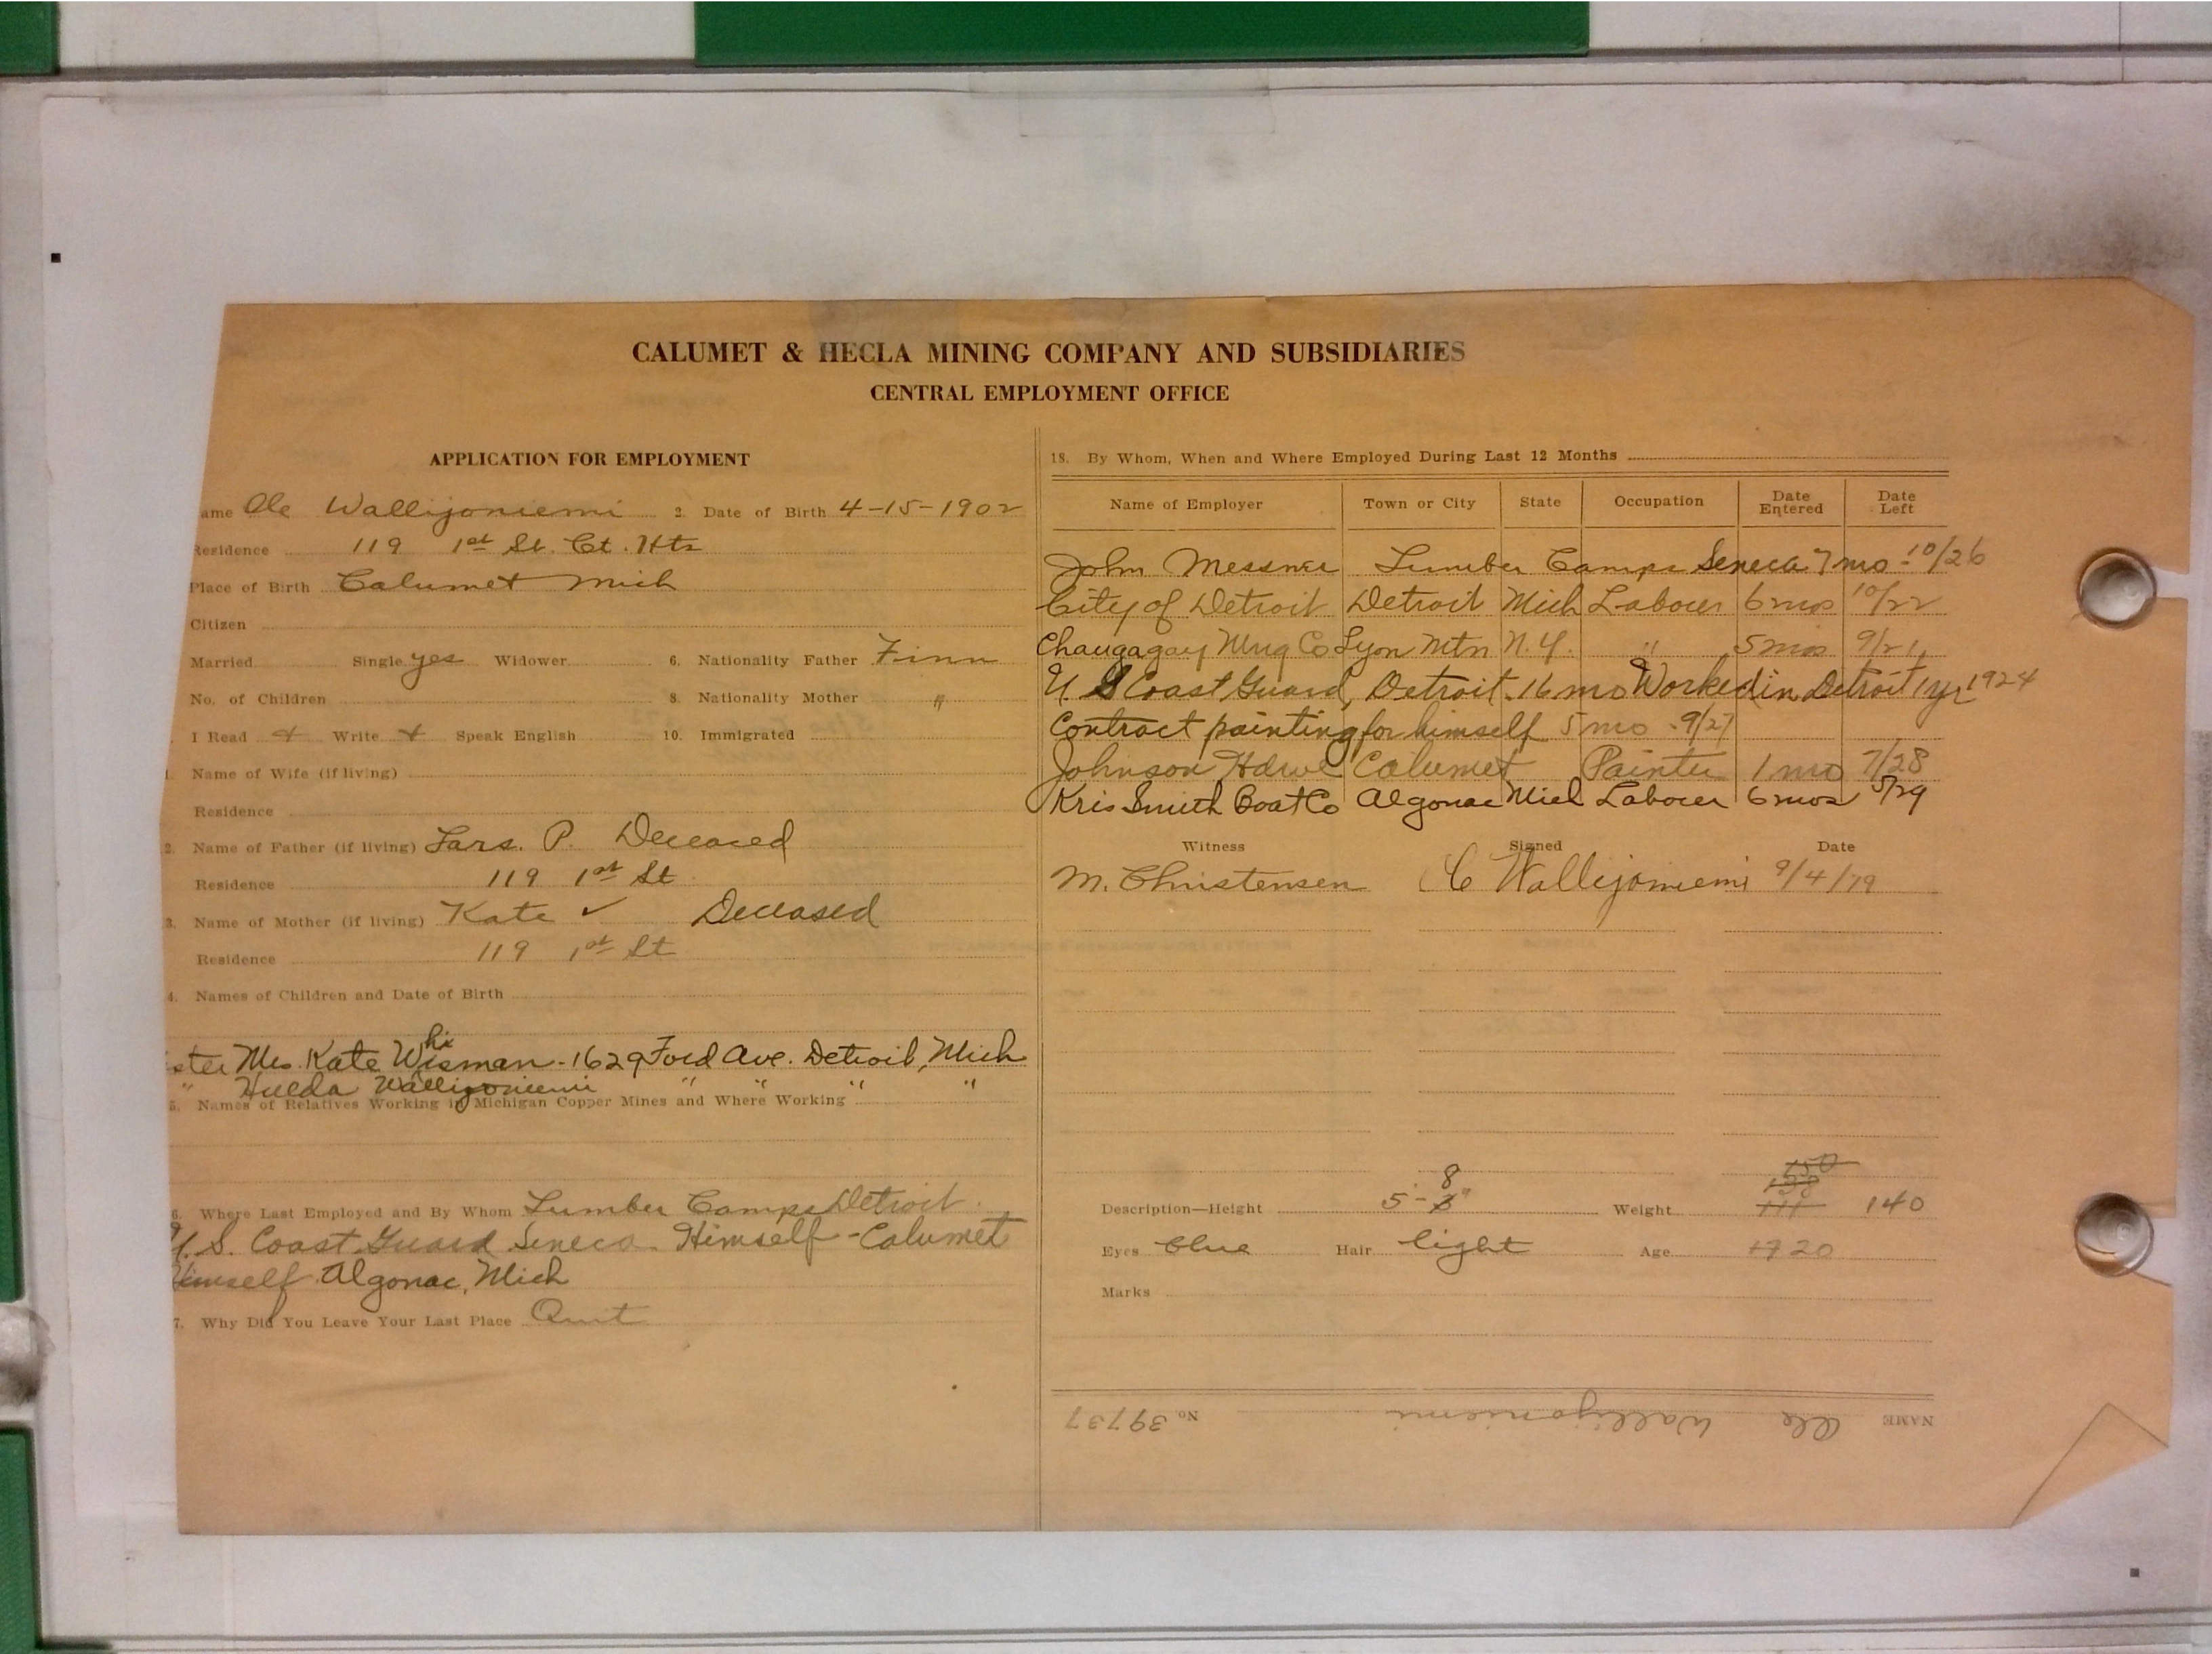 CALUMET & HECLA MINING COMPANY AND SUBSIDIARIES
CENTRAL EMPLOYMENT OFFICE
APPLICATION FOR EMPLOYMENT
ame Ole Wallijoniemi 2. Date of Birth 4-15-1902
Residence 119 1st St. Ct. Hts
Place of Birth Calumet Mich
Citizen
Married Single yes Widower 6. Nationality Father Finn
No. of Children 8. Nationality Mother "
I Read + Write + Speak English 10. Immigrated
Name of Wife (if living)
Residence
2. Name of Father (if living) Lars. P. Deceased
Residence 119 1st St
3. Name of Mother (if living) Kate ✓ Deceased
Residence 119 1st St
4. Names of Children and Date of Birth
ster Mrs. Kate Whisman - 1629 Ford Ave. Detroit, Mich
" Hulda Wallijoniemi " " " "
5. Names of Relatives Working in Michigan Copper Mines and Where Working
6. Where Last Employed and By Whom Lumber Camps Detroit
U.S. Coast Guard Seneca. Himself - Calumet
Himself Algonac, Mich
7. Why Did You Leave Your Last Place Quit
18. By Whom, When and Where Employed During Last 12 Months
Name of Employer Town or City State Occupation Date Entered Date Left
John Messner Lumber Camps Seneca 7 mo - 10/26
City of Detroit Detroit Mich Laborer 6 mos 10/22
Chaugagay Mng Co Lyon Mtn N.Y. " 5 mos 9/21
U S Coast Guard, Detroit. 16 mo Worked in Detroit 1 yr 1924
Contract painting for himself 5 mo. 9/27
Johnson Hdwe Calumet Painter 1 mo 7/28
Kris Smith Boat Co Algonac Mich Laborer 6 mos 5/29
Witness Signed Date
M. Christensen Wallijoniemi 9/4/19
Description—Height 5-8" Weight 150 138 111 140
Eyes blue Hair light Age 17 20
Marks
NAME Ole Wallijoniemi No. 39737